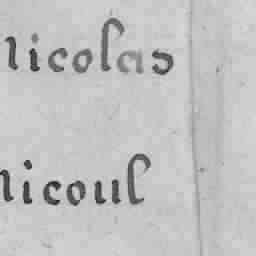 Nicolas
Nicoul